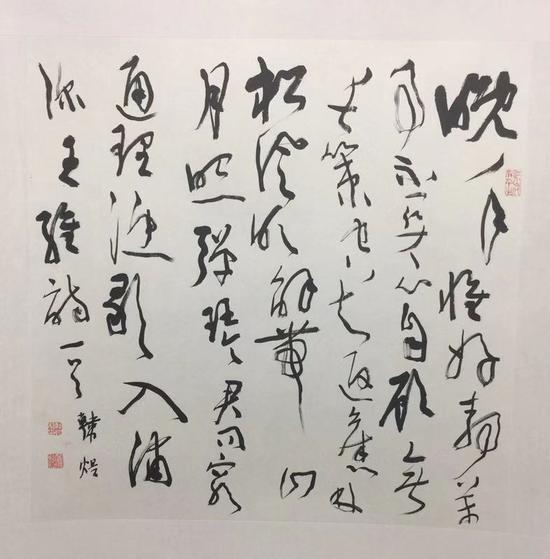 晚年惟好靜萬
事不關心自顧無
長策空知返舊林
松風吹解帶山
月照彈琴君問窮
通理漁歌入浦
深王維詩一首
韓煜